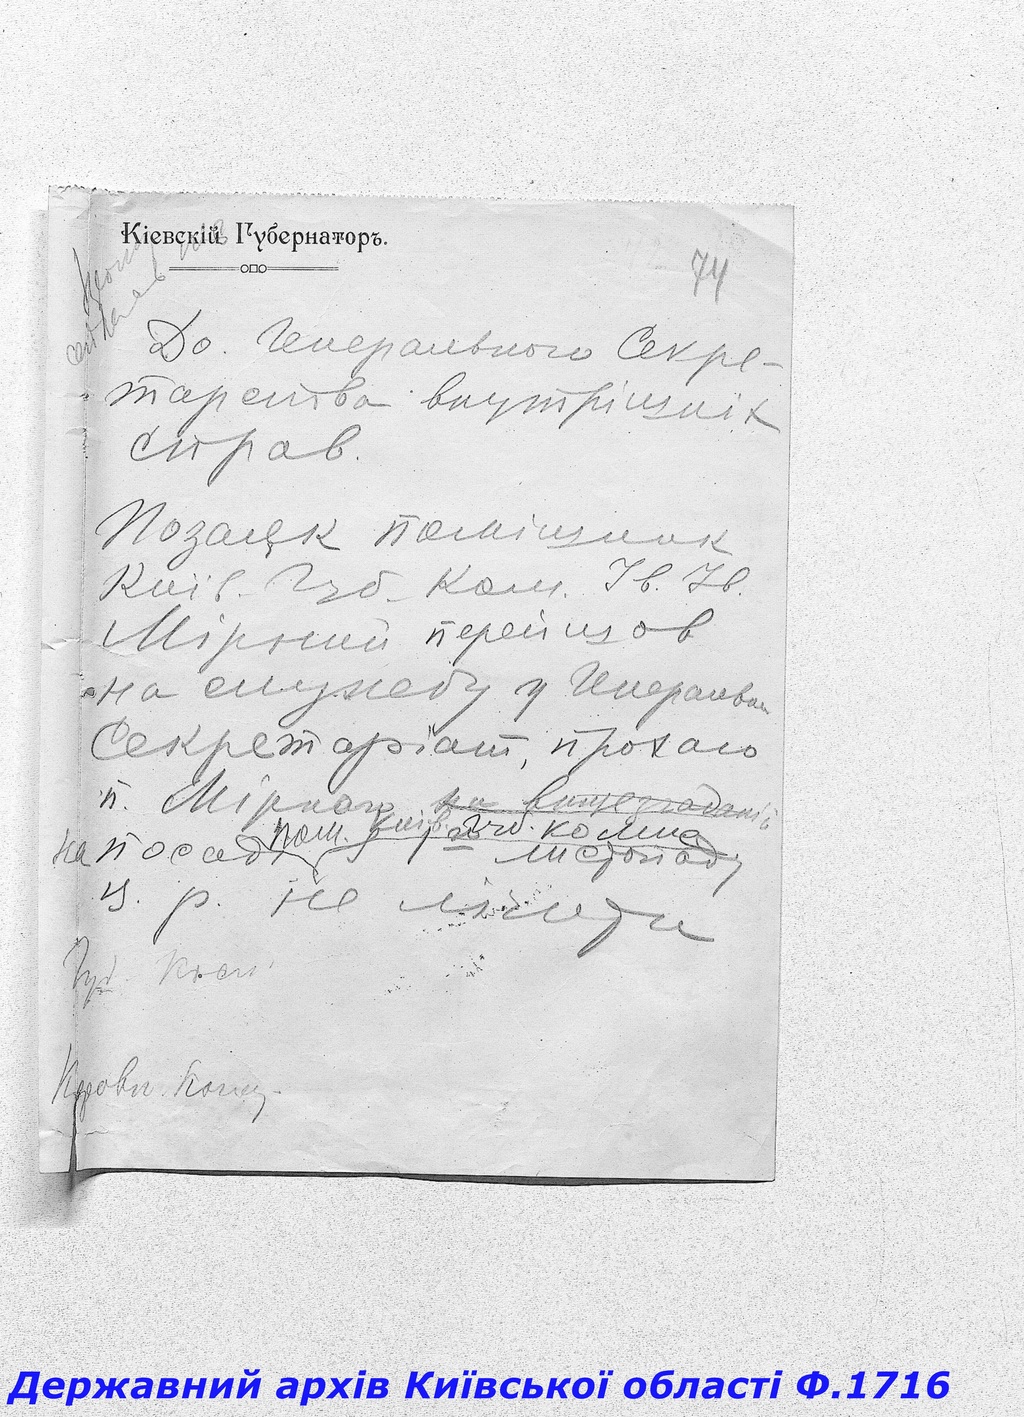 Кіевскій Губернаторъ.
74
До. Генерального Секре-
тарства внутрішніх
справ.
Позаяк помішник
Київ. Губ. Ком. Ів. Ів.
Мірний перейшов
на службу у Генеральн
Секретаріат, прохаю
п. Мірного на вищезгаданій
пом. Київ. Губ. коміс
на посаді з листопаду
ц. р. не лічити
Губ. Ком.
Державний архів Київської області Ф.1716